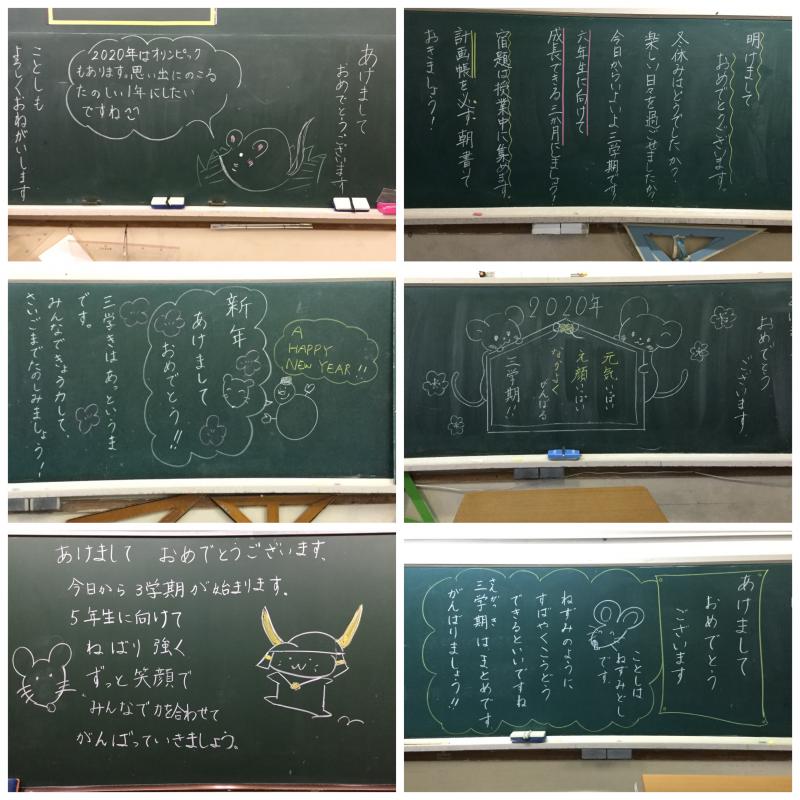 あけまして
おめでとうございます
2020年はオリンピック
もあります。思い出にのこる
たのしい1年にしたい
ですね
ことしも
よろしくおねがいします
明けまして
おめでとうございます。
冬休みはどうでしたか?
楽しい日々を過ごせましたか?
今日からいよいよ三学期です!
六年生に向けて
成長できる三か月にしましょう!
宿題は授業中に集めます。
計画帳を必ず朝書いて
おきましょう!
A
HAPPY
NEW YEAR!!
新年
あけまして
おめでとう!!
三学きはあっというま
です。
みんなできょう力して、
さいごまでたのしみましょう!
2020年
おめでとう
ございます
元気いっぱい
笑顔いっぱい
なかよく
がんばる
三学期!!
あけまして おめでとうございます。
今日から 3学期が始まります。
5年生に向けて
ねばり強く
ずっと笑顔で
みんなで力を合わせて
がんばっていきましょう。
あけまして
おめでとう
ございます
ことしは
ねずみどし
です。
ねずみのように
すばやくこうどう
できるといいですね
三学期はまとめです
がんばりましょう!!